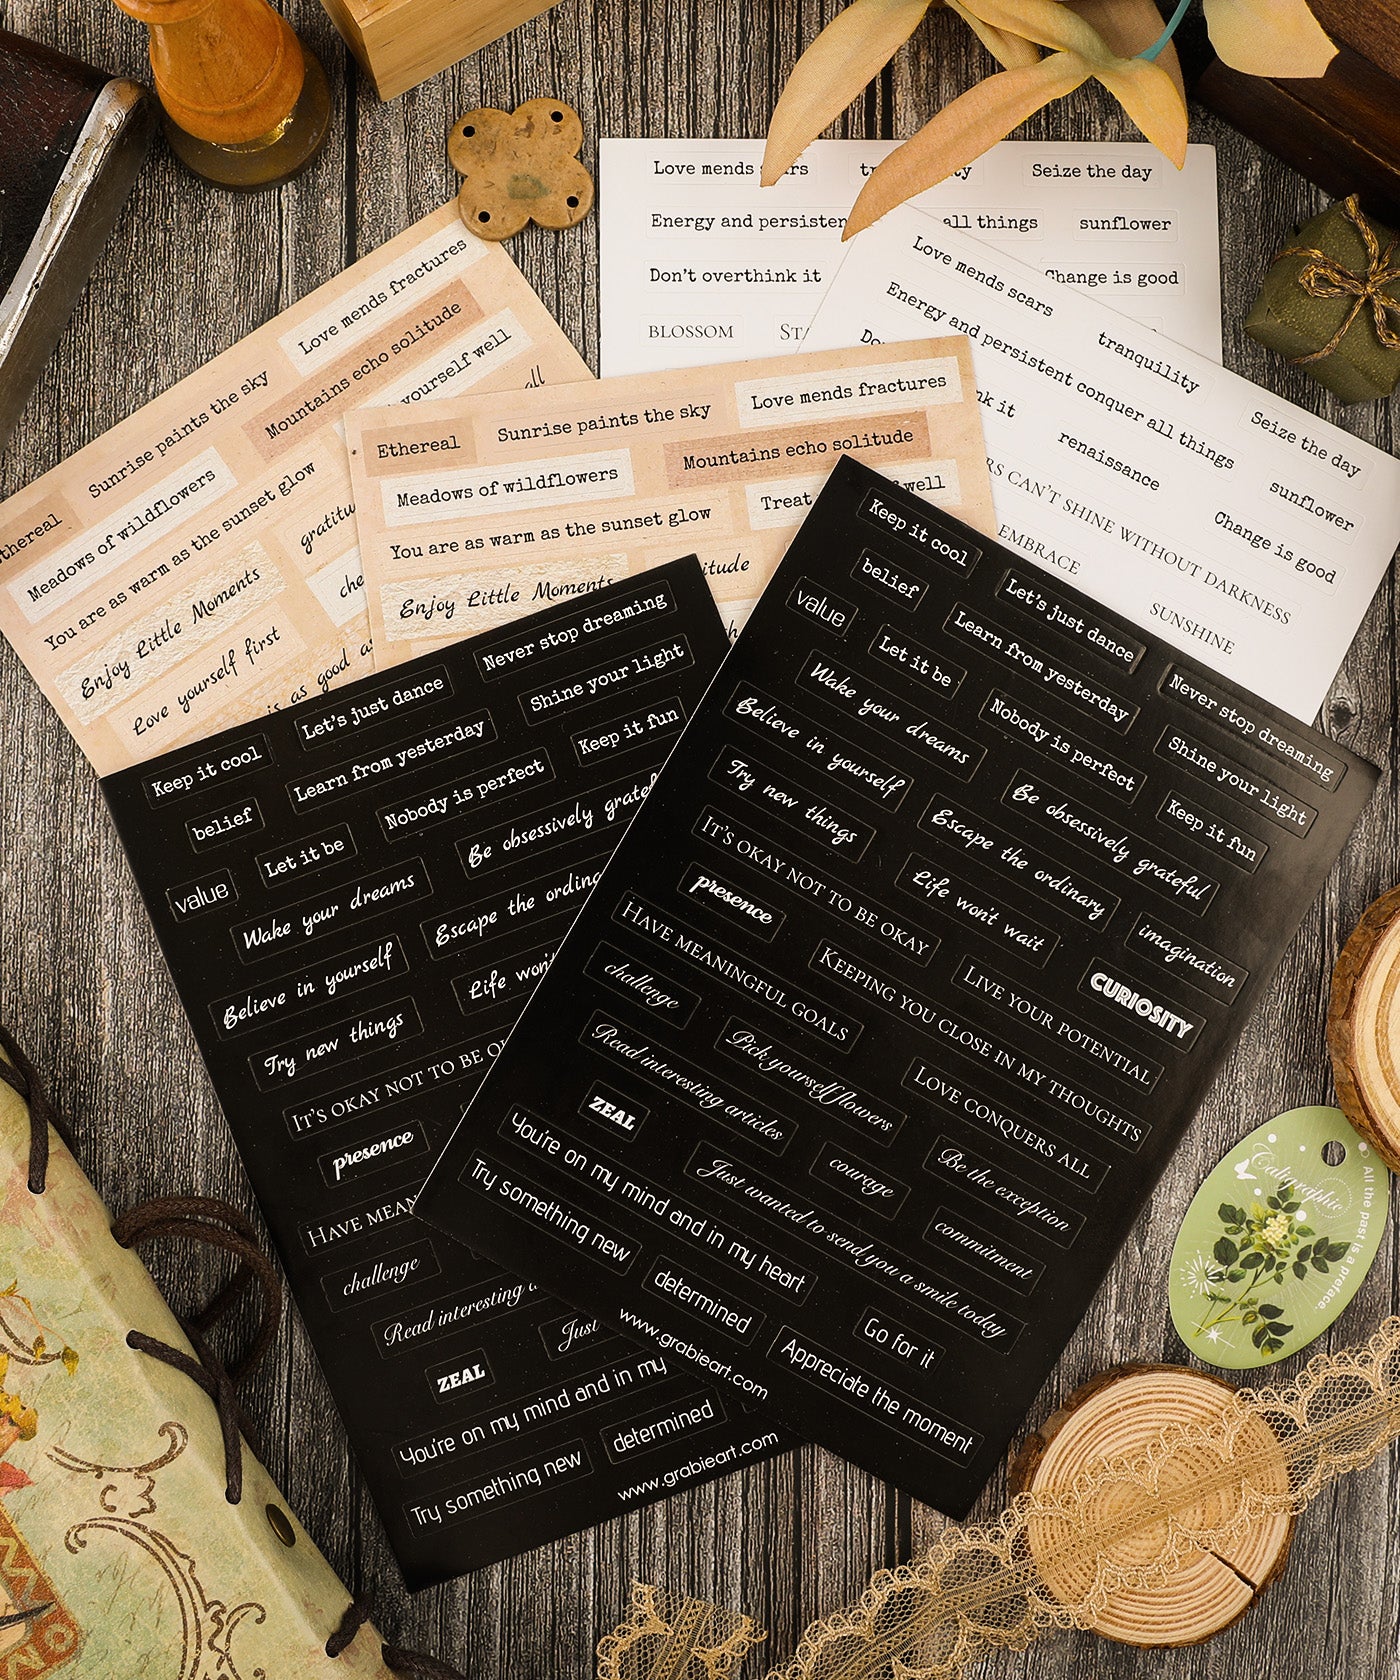 Love mends
Seize the day
Energy and
all things
sunflower
Don't overthink it
Change is good
BLOSSOM
Love mends scars
tranquility
Seize the day
Energy and persistent conquer all things
sunflower
it
renaissance
Change is good
CAN'T SHINE WITHOUT DARKNESS
EMBRACE
SUNSHINE
Love mends fractures
Sunrise paints the sky
Mountains echo solitude
Ethereal
yourself well
Meadows of wildflowers
all
You are as warm as the sunset glow
Enjoy Little Moments
Love yourself first
is as good
Ethereal
Sunrise paints the sky
Love mends fractures
Meadows of wildflowers
Mountains echo solitude
You are as warm as the sunset glow
Treat
well
Enjoy Little Moments
Keep it cool
Let's just dance
Never stop dreaming
belief
Learn from yesterday
Shine your light
value
Let it be
Nobody is perfect
Keep it fun
Wake your dreams
Be obsessively
Believe in yourself
Escape the
Try new things
Life
IT'S OKAY NOT TO BE
presence
HAVE
challenge
Read interesting
ZEAL
Just
You're on my mind and in my
Try something new
determined
www.grabieart.com
Keep it cool
Let's just dance
Never stop dreaming
belief
Learn from yesterday
Shine your light
value
Let it be
Nobody is perfect
Keep it fun
Wake your dreams
Be obsessively grateful
Believe in yourself
Escape the ordinary
imagination
Try new things
Life won't wait
CURIOSITY
IT'S OKAY NOT TO BE OKAY
LIVE YOUR POTENTIAL
presence
KEEPING YOU CLOSE IN MY THOUGHTS
HAVE MEANINGFUL GOALS
LOVE CONQUERS ALL
challenge
Pick yourself flowers
Be the exception
Read interesting articles
courage
commitment
ZEAL
Just wanted to send you a smile today
You're on my mind and in my heart
Go for it
Try something new
determined
Appreciate the moment
www.grabieart.com
Caligraphic
All the past is a preface.